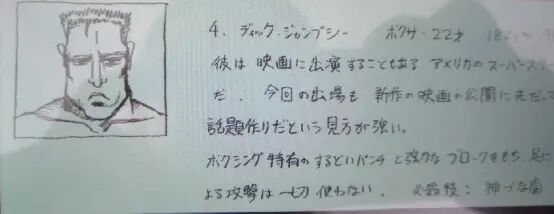 4. ディック・ジャンプシー ボクサー 22才 18
彼は 映画に出演することもある アメリカの スーパース
だ. 今回の出場も 新作の映画の公開に先だって
話題作りだという見方が強い.
ボクシング特有のするどいパンチ と 強力な ブロックをもち、足に
よる攻撃は一切使わない. 必殺技: